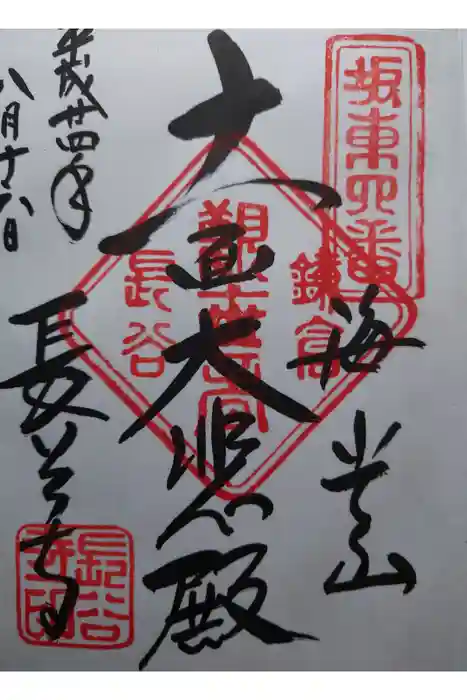 坂東四番
海光山
鎌倉
觀世音
長谷
十一面大悲殿
長谷寺
長谷寺印
平成廿四年
八月十八日